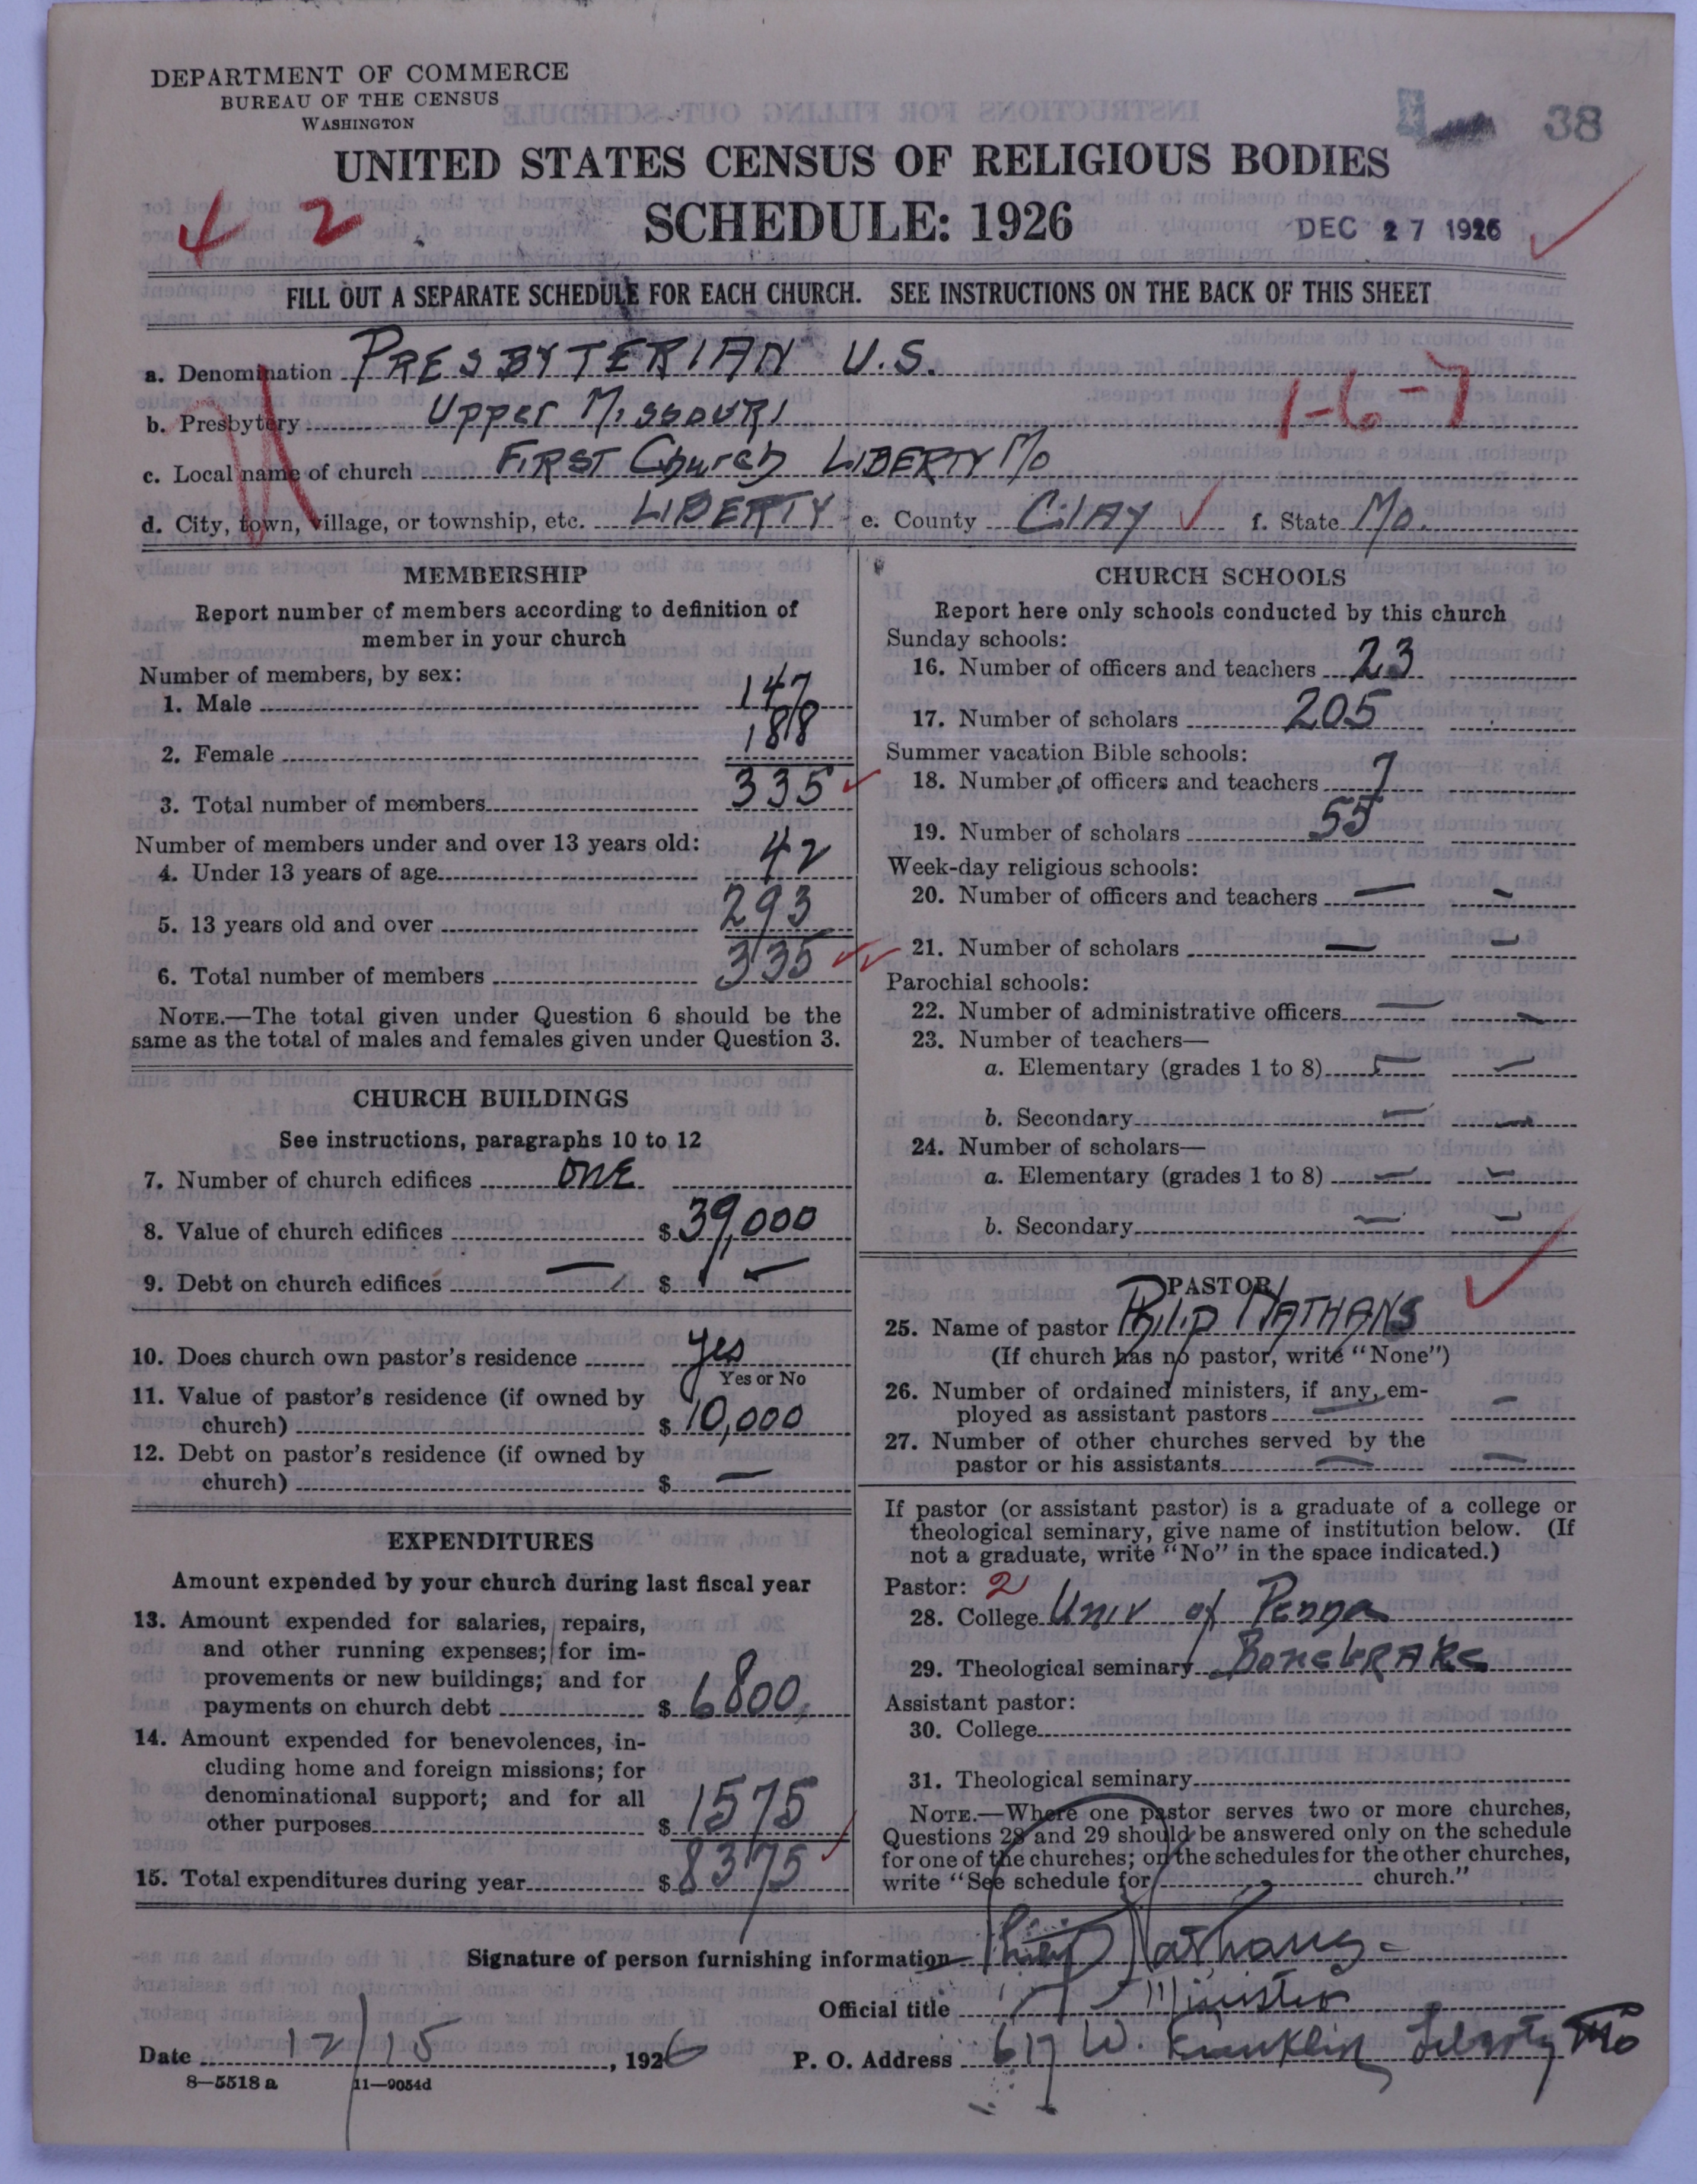 DEPARTMENT OF COMMERCE
BUREAU OF THE CENSUS
WASHINGTON
38
UNITED STATES CENSUS OF RELIGIOUS BODIES
4 2
SCHEDULE: 1926
DEC 27 1926
FILL OUT A SEPARATE SCHEDULE FOR EACH CHURCH. SEE INSTRUCTIONS ON THE BACK OF THIS SHEET
a. Denomination PRESBYTERIAN U.S.
1-6-7
b. Presbytery Upper Missouri
c. Local name of church FIRST Church LIBERTY Mo
d. City, town, village, or township, etc. LIBERTY e. County Clay f. State Mo.
MEMBERSHIP
Report number of members according to definition of
member in your church
Number of members, by sex:
1. Male 147
2. Female 188
3. Total number of members 335
Number of members under and over 13 years old:
4. Under 13 years of age 42
5. 13 years old and over 293
6. Total number of members 335
NOTE.—The total given under Question 6 should be the
same as the total of males and females given under Question 3.
CHURCH BUILDINGS
See instructions, paragraphs 10 to 12
7. Number of church edifices ONE
8. Value of church edifices $ 39,000
9. Debt on church edifices — $ —
10. Does church own pastor's residence yes
Yes or No
11. Value of pastor's residence (if owned by
church) $ 10,000
12. Debt on pastor's residence (if owned by
church) $ —
EXPENDITURES
Amount expended by your church during last fiscal year
13. Amount expended for salaries, repairs,
and other running expenses; for im-
provements or new buildings; and for
payments on church debt $ 6800,
14. Amount expended for benevolences, in-
cluding home and foreign missions; for
denominational support; and for all
other purposes $ 1575
15. Total expenditures during year $ 8375
CHURCH SCHOOLS
Report here only schools conducted by this church
Sunday schools:
16. Number of officers and teachers 23
17. Number of scholars 205
Summer vacation Bible schools:
18. Number of officers and teachers 7
19. Number of scholars 55
Week-day religious schools:
20. Number of officers and teachers — —
21. Number of scholars — —
Parochial schools:
22. Number of administrative officers — —
23. Number of teachers—
a. Elementary (grades 1 to 8) — —
b. Secondary — —
24. Number of scholars—
a. Elementary (grades 1 to 8) — —
b. Secondary — —
PASTOR
25. Name of pastor Philip NATHANS
(If church has no pastor, write "None")
26. Number of ordained ministers, if any, em-
ployed as assistant pastors — —
27. Number of other churches served by the
pastor or his assistants — —
If pastor (or assistant pastor) is a graduate of a college or
theological seminary, give name of institution below. (If
not a graduate, write "No" in the space indicated.)
Pastor: 2
28. College Univ of Penna
29. Theological seminary BoneBRAKe
Assistant pastor:
30. College
31. Theological seminary
NOTE.—Where one pastor serves two or more churches,
Questions 28 and 29 should be answered only on the schedule
for one of the churches; on the schedules for the other churches,
write "See schedule for church."
Signature of person furnishing information Philip Nathans
Official title Minister
Date 12/15, 1926 P. O. Address 617 W. Franklin Liberty Mo
8—5518 a 11—9054d